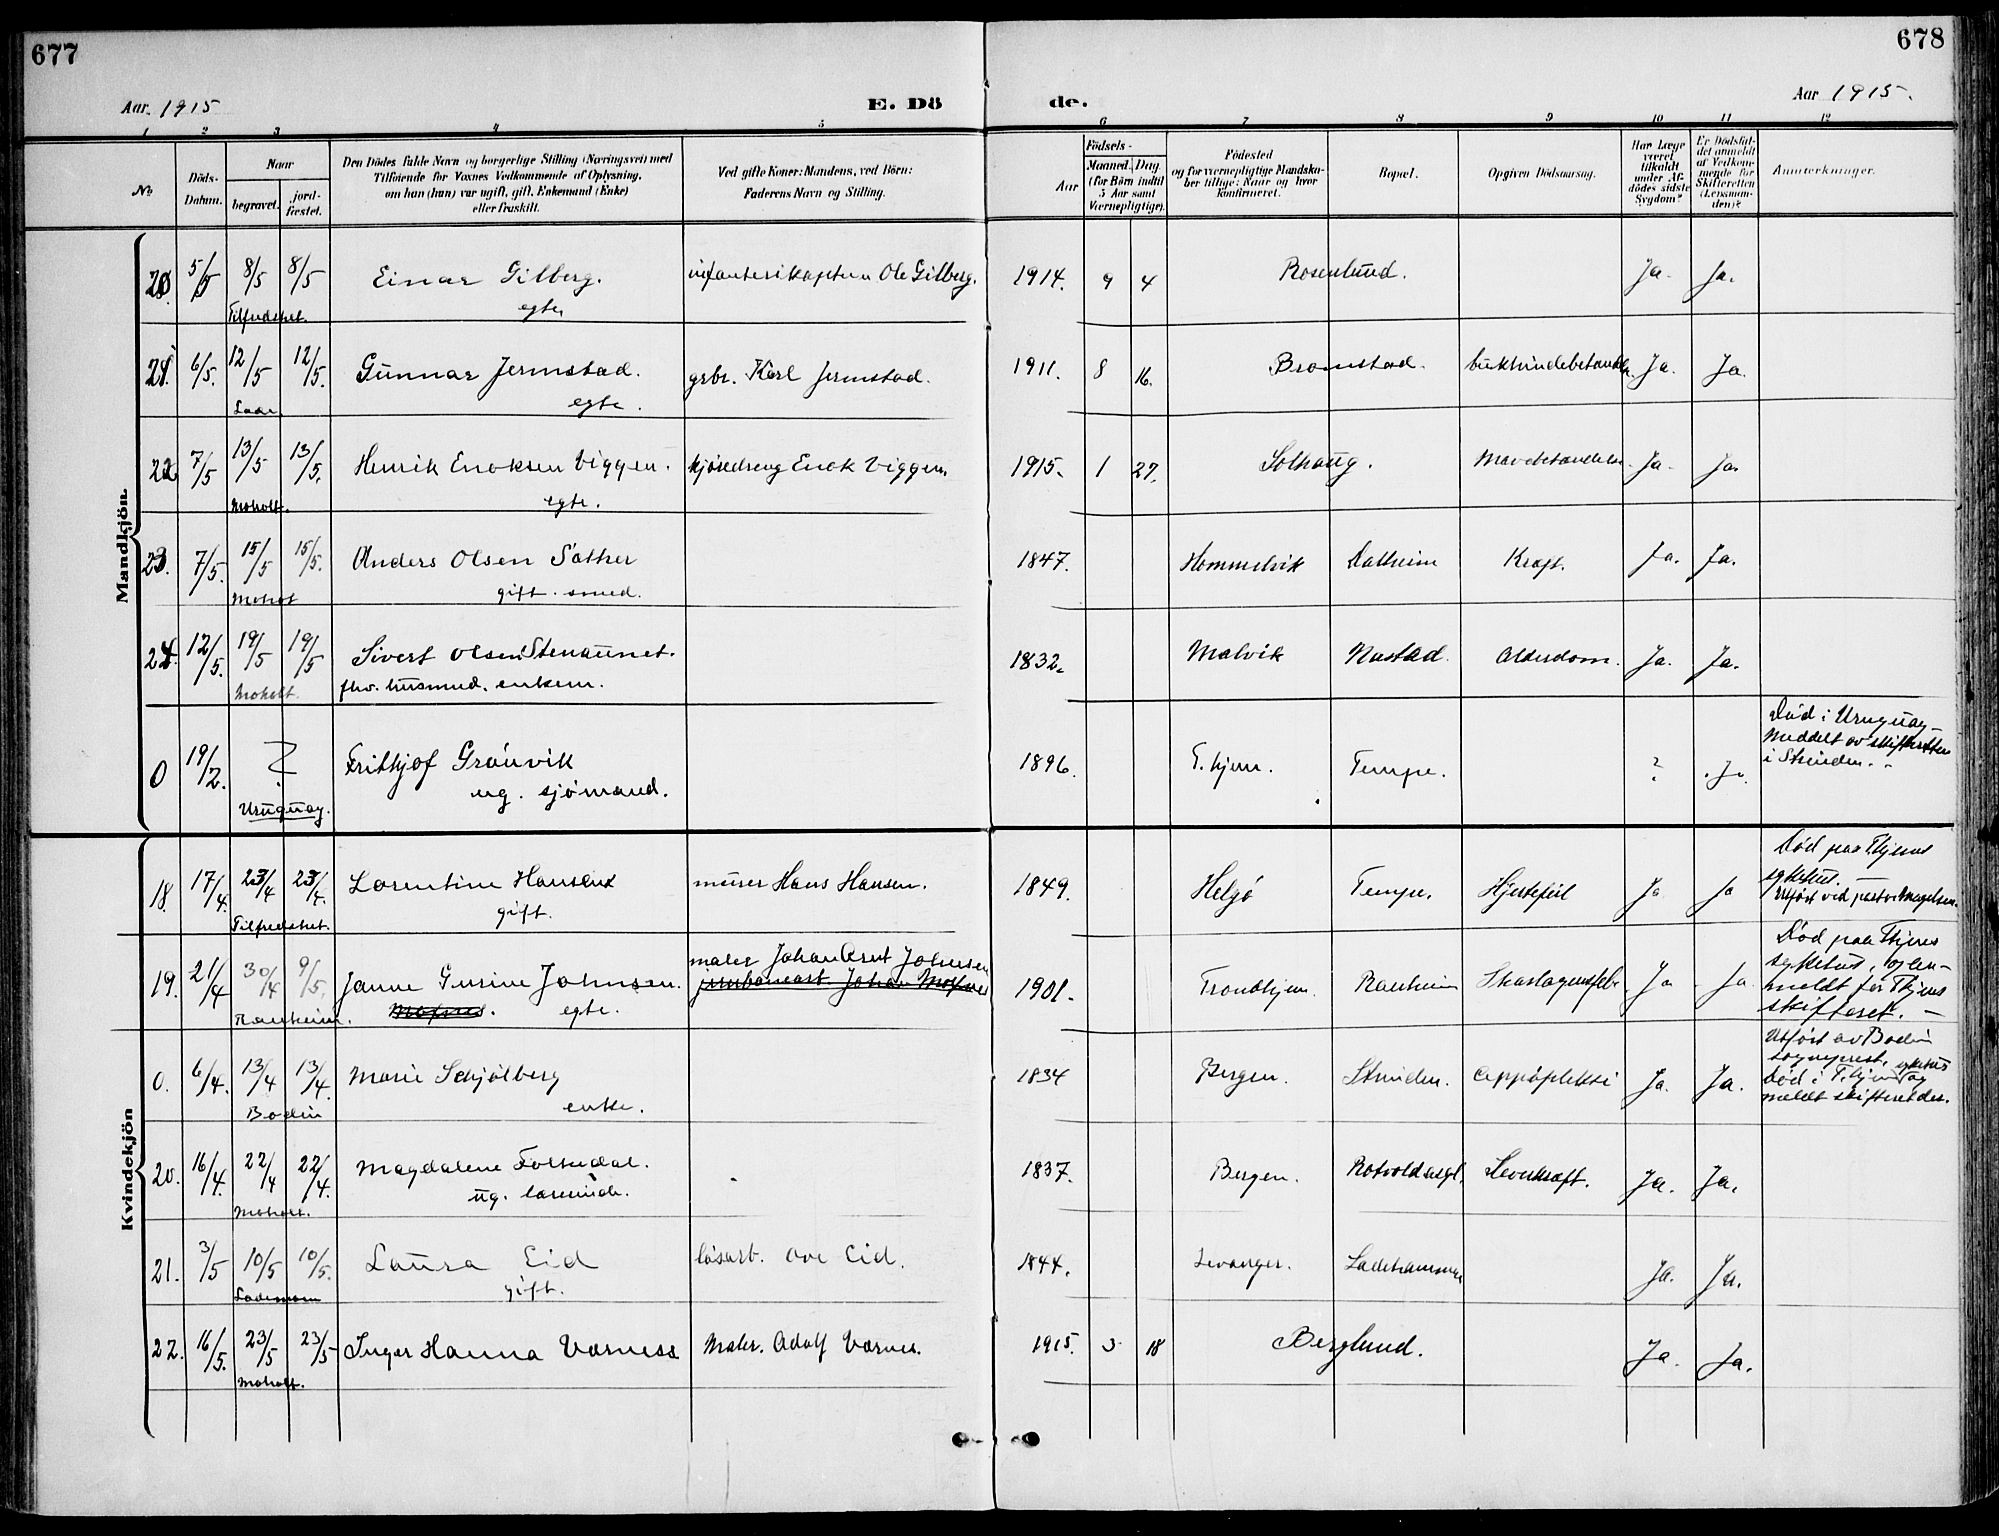 677
678
Aar. 1915
E. Dö
de.
Aar 1915.
1 2 3 4 5 6 7 8 9 10 11 12
No
Döds-Datum.
Naar
begravet.
jordfæstet.
Den Dödes fulde Navn og borgerlige Stilling (Næringsvei) med
Tilföiende for Voxnes Vedkommende af Oplysning,
om han (hun) var ugift, gift, Enkemand (Enke)
eller fraskilt.
Ved gifte Koner: Mandens, ved Börn:
Faderens Navn og Stilling.
Födsels-
Aar
Maaned. Dag.
(for Börn indtil
5 Aar samt
Værnepligtige).
Födested
og for værnepligtige Mandskaber tillige: Naar og hvor
konfirmeret.
Bopæl.
Opgiven Dödsaarsag.
Har Læge
været
tilkaldt
under Afdödes sidste
Sygdom?
Er Dödsfaldet anmeldt
af Vedkommende for
Skifteretten
(Lensmanden)?
Anmærkninger.
Mandkjön.
20. 5/5 8/5 8/5 Einar Gilberg. infanterikaptein Ole Gilberg. 1914. 9 4 Rosenlund. Ja. Ja.
Tilfredshet. egte
21. 6/5. 12/5 12/5. Gunnar Jermstad. grbr. Karl Jermstad. 1911. 8 16. Bromstad. bukhindebetændelse. Ja. Ja.
Lade egte.
22 7/5 13/5 13/5. Henrik Enoksen Viggen. kjøredreng Enok Viggen. 1915. 1 27. Solhaug. Mavebetændelse. Ja. Ja.
Moholt. egte.
23. 7/5. 15/5 15/5. Anders Olsen Sæther 1847. Hommelvik Dalheim Kræft. Ja. Ja.
Moholt gift. smed.
24. 12/5. 19/5 19/5 Sivert Olsen Stenaunet. 1832. Malvik Rastad. Alderdom. Ja. Ja.
Moholt. fhv. husmand. enkem.
0 19/2. ? Frithjof Grönvik 1896. T.hjem. Tempe. ? Ja. Död i Uruguay
Meddelt av skifteretten
i Strinden.
Uruguay. ug. sjömand.
Kvindekjön
18. 17/4. 23/4 23/4. Lorentine Hansen murer Hans Hansen. 1849. Helgö Tempe. Hjertefeil Ja Ja Död paa Thjems
sykehus.
Utført ved pastor Magelsen.
Tilfredshet. gift.
19. 21/4 30/4 9/5. Janne Gurine Johnsen. maler Johan Arnt Johnsen 1901. Trondhjem. Ranheim Skarlagensfeber Ja Ja Död paa Thjems
sykehus, og anmeldt for Thjems
skifteret.
Ranheim. egte.
0. 6/4. 13/4 13/4. Marie Schjølberg 1834 Bergen. Strinden. Appoplekti Ja. Ja. Utført av Bodin
sogneprest.
Död i T.hjems sykehus og
meldt skifteret der.
Bodin enke.
20. 16/4. 22/4 22/4. Magdalene Folkedal. 1837. Bergen. Rotvold asyl. Leverkræft. Ja. Ja.
Moholt. ug. lærerinde.
21. 3/5 10/5 10/5. Laura Eid løsarb. Ove Eid. 1844. Levanger. Ladehammer Ja. Ja.
Lademoen gift.
22. 16/5. 23/5 23/5 Inger Hanna Værness Maler. Adolf Værnes. 1915. 3 18 Berglund. Ja. Ja.
Moholt.